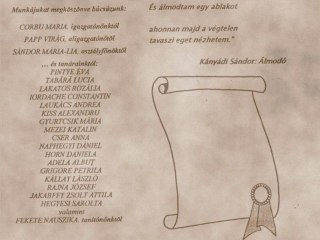 Munkájukat megköszönve búcsúzunk:
CORBU MARIA. igazgatónőktől
PAPP VIRÁG. aligazgatónőtől
SÁNDOR MARIA-LIA. osztályfőnöktől
... és tanárainktól:
PINTYE ÉVA
TABĂRĂ LUCIA
LAKATOS ROZÁLIA
IORDACHE CONSTANTIN
LAUKÁCS ANDREA
KISS ALEXANDRU
GYURTCSIK MÁRIA
MEZEI KATALIN
CSER ANNA
NAPHEGYI DÁNIEL
HORN DANIELA
ADELA ALBUȚ
GRIGORE PETRILA
KÁLLAY LÁSZLÓ
RAJNA JÓZSEF
JAKABFFY ZSOLT ATTILA
HEGYESI SAROLTA
valamint
FEKETE NAUSZIKA. tanítónőnktől
És álmodtam egy ablakot
ahonnan majd a végtelen
tavaszi eget nézhetem."
Kányádi Sándor: Álmodó